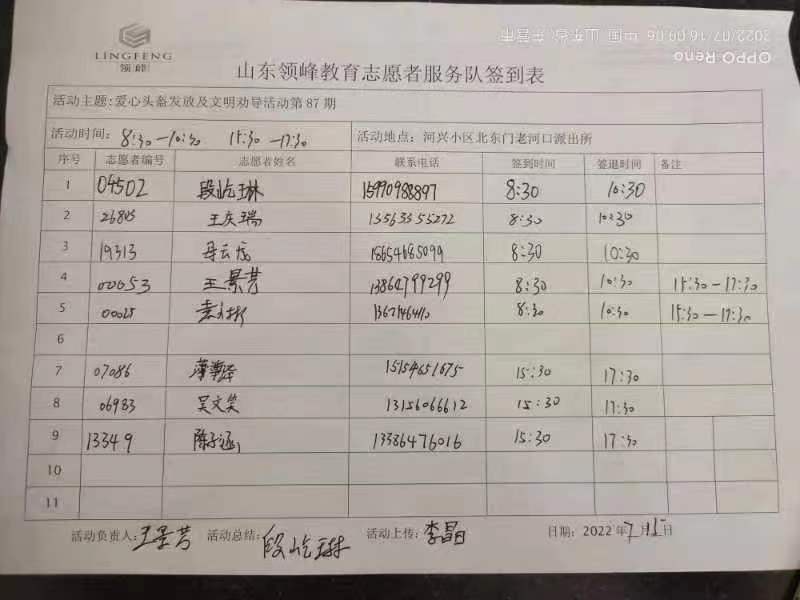 LINGFENG
领峰
2022/07/16 09:06 中国·山东省·东营市
OPPO Reno
山东领峰教育志愿者服务队签到表
活动主题:爱心头盔发放及文明劝导活动第87期
活动时间: 8:30—10:30 15:30—17:30 活动地点: 河兴小区北东门老河口派出所
序号 志愿者编号 志愿者姓名 联系电话 签到时间 签退时间 备注
1 04502 段屹琳 15990988897 8:30 10:30
2 26803 王庆瑞 13563355272 8:30 10:30
3 19313 18654685099 8:30 10:30
4 00053 王景芳 13864799299 8:30 10:30 15:30—17:30
5 00025 8:30 10:30 15:30—17:30
6
7 07086 15154651675 15:30 17:30
8 06983 吴文笑 13156066612 15:30 17:30
9 13349 陈子涵 13386476016 15:30 17:30
10
11
活动负责人: 王景芳 活动总结: 段屹琳 活动上传: 李晶 日期: 2022年7月15日